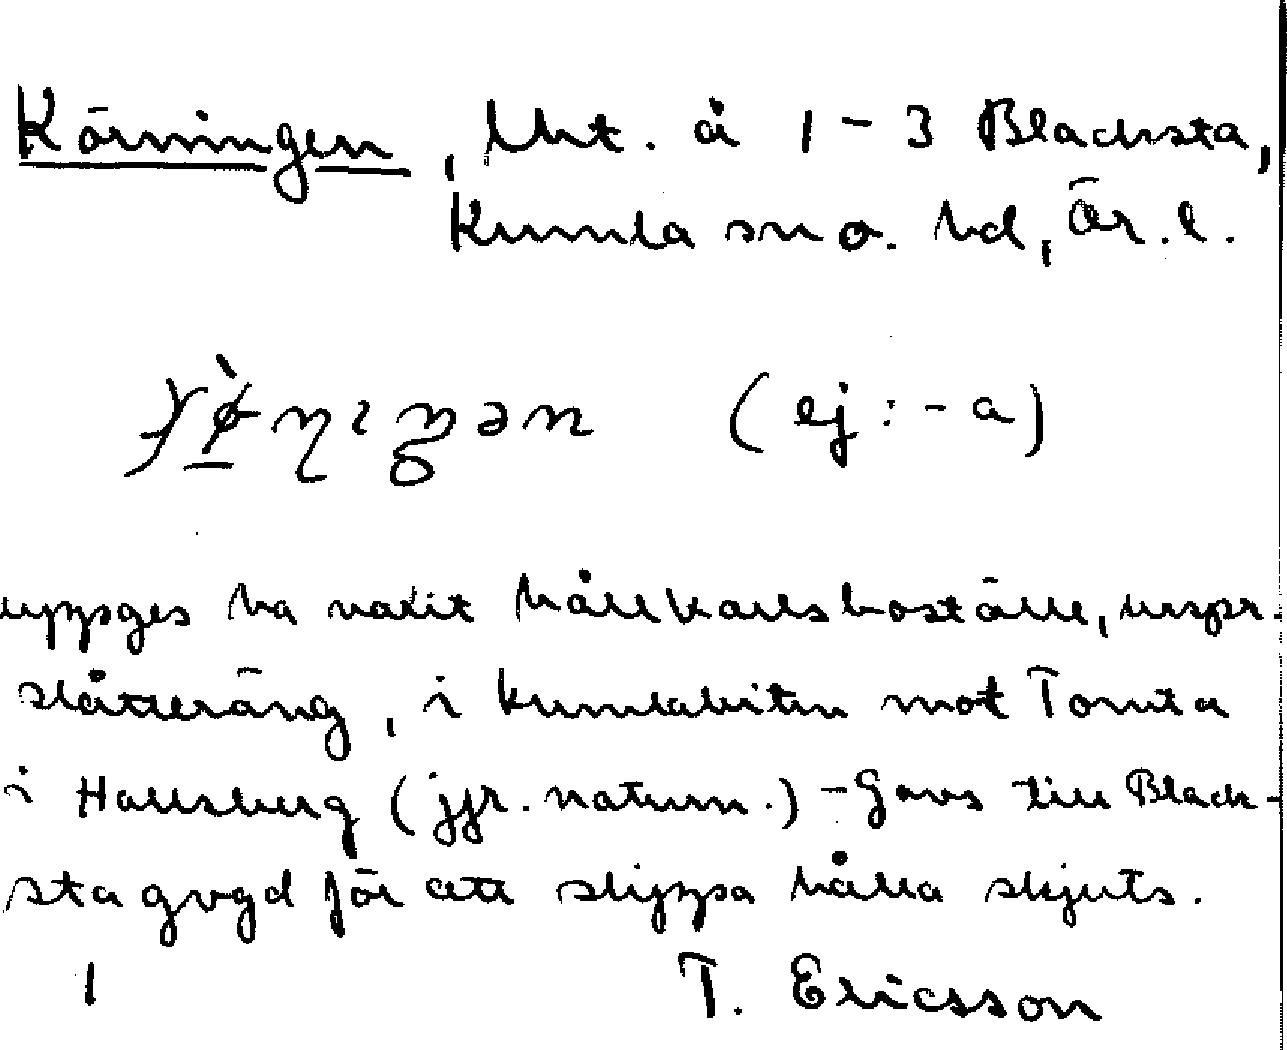 Körningen, lht. å 1-3 Blacksta,
Kumla sn o. hd, Ör. l.
(ej: -a)
uppges ha varit hållkarlsboställe, urspr.
slåtteräng, i kumlabiten mot Tomta
i Hallsberg (jfr. naturn.) - Gavs till Black-
sta gvgd för att slippa hålla skjuts.
1 T. Ericsson